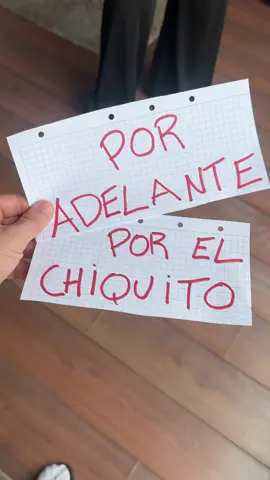 POR
ADELANTE
POR EL
CHiQUiTO